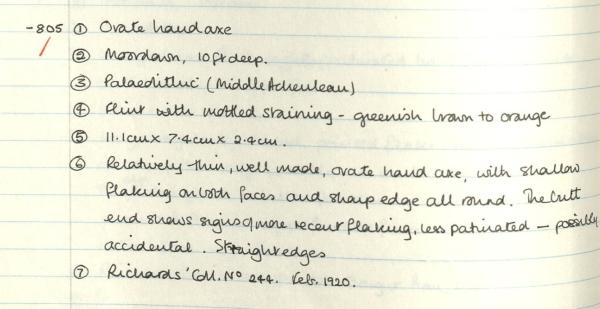 -805 ① Ovate hand axe
② Moordown, 10ft deep.
③ Palaeolithic (Middle Acheulean)
④ Flint with mottled staining - greenish brown to orange
⑤ 11.1cm x 7.4cm x 2.4cm.
⑥ Relatively thin, well made, ovate hand axe, with shallow
flaking on both faces and sharp edge all round. The butt
end shows signs of more recent flaking, less patinated — possibly
accidental. Straight edges
⑦ Richards' Coll. No 244. Feb. 1920.